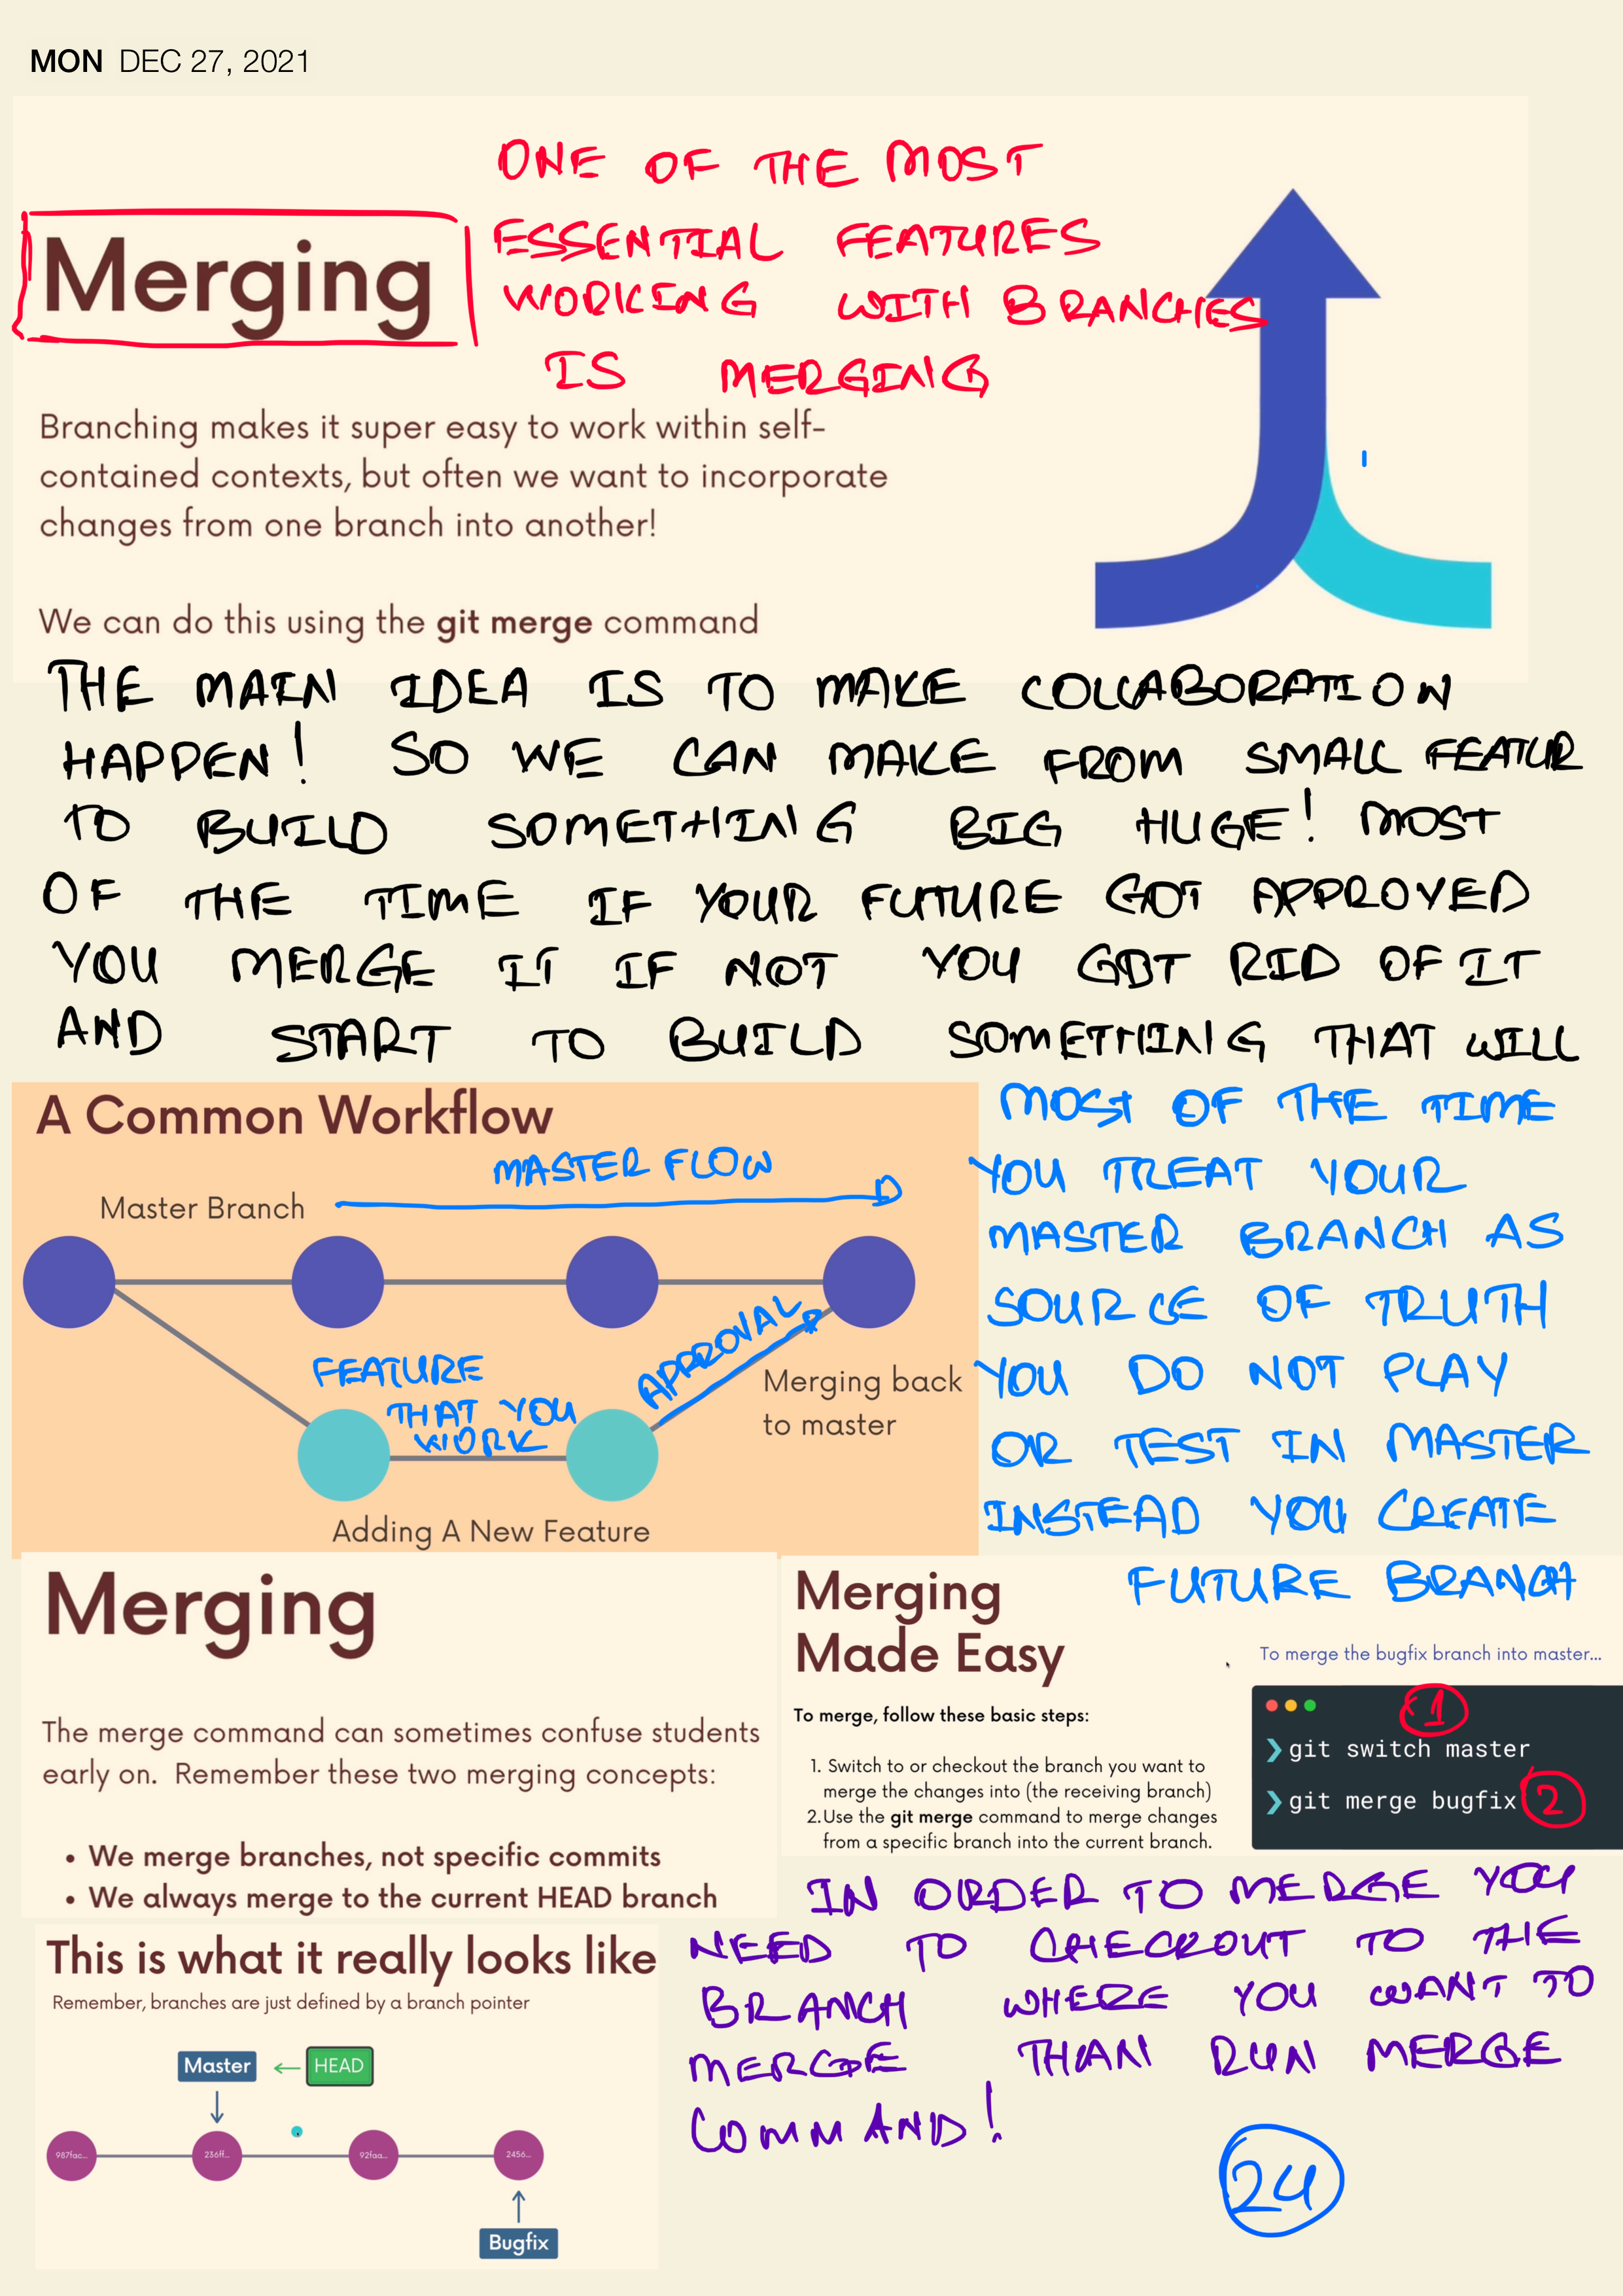 MON DEC 27, 2021
ONE OF THE MOST
ESSENTIAL FEATURES
WORKING WITH BRANCHES
IS MERGING
Merging
Branching makes it super easy to work within self-
contained contexts, but often we want to incorporate
changes from one branch into another!
We can do this using the git merge command
THE MAIN IDEA IS TO MAKE COLLABORATION
HAPPEN! SO WE CAN MAKE FROM SMALL FEATUR
TO BUILD SOMETHING BIG HUGE! MOST
OF THE TIME IF YOUR FUTURE GOT APPROVED
YOU MERGE IT IF NOT YOU GOT RID OF IT
AND START TO BUILD SOMETHING THAT WILL
A Common Workflow
MASTER FLOW
Master Branch
FEATURE
THAT YOU
WORK
APPROVAL
Merging back
to master
Adding A New Feature
MOST OF THE TIME
YOU TREAT YOUR
MASTER BRANCH AS
SOURCE OF TRUTH
YOU DO NOT PLAY
OR TEST IN MASTER
INSTEAD YOU CREATE
FUTURE BRANCH
Merging
The merge command can sometimes confuse students
early on. Remember these two merging concepts:
• We merge branches, not specific commits
• We always merge to the current HEAD branch
Merging
Made Easy
To merge, follow these basic steps:
1. Switch to or checkout the branch you want to
merge the changes into (the receiving branch)
2.Use the git merge command to merge changes
from a specific branch into the current branch.
To merge the bugfix branch into master...
1
❯ git switch master
❯ git merge bugfix 2
This is what it really looks like
Remember, branches are just defined by a branch pointer
Master ← HEAD
987fac... 236ff... 92faa... 2456...
Bugfix
IN ORDER TO MERGE YOU
NEED TO CHECKOUT TO THE
BRANCH WHERE YOU WANT TO
MERGE THAN RUN MERGE
COMMAND!
24